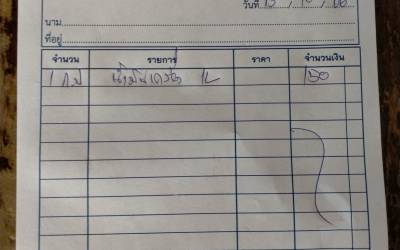 วันที่ 15 / 10 / 66
นาม
ที่อยู่
จำนวน รายการ ราคา จำนวนเงิน
1 น้ำมันเครื่อง 1L 150